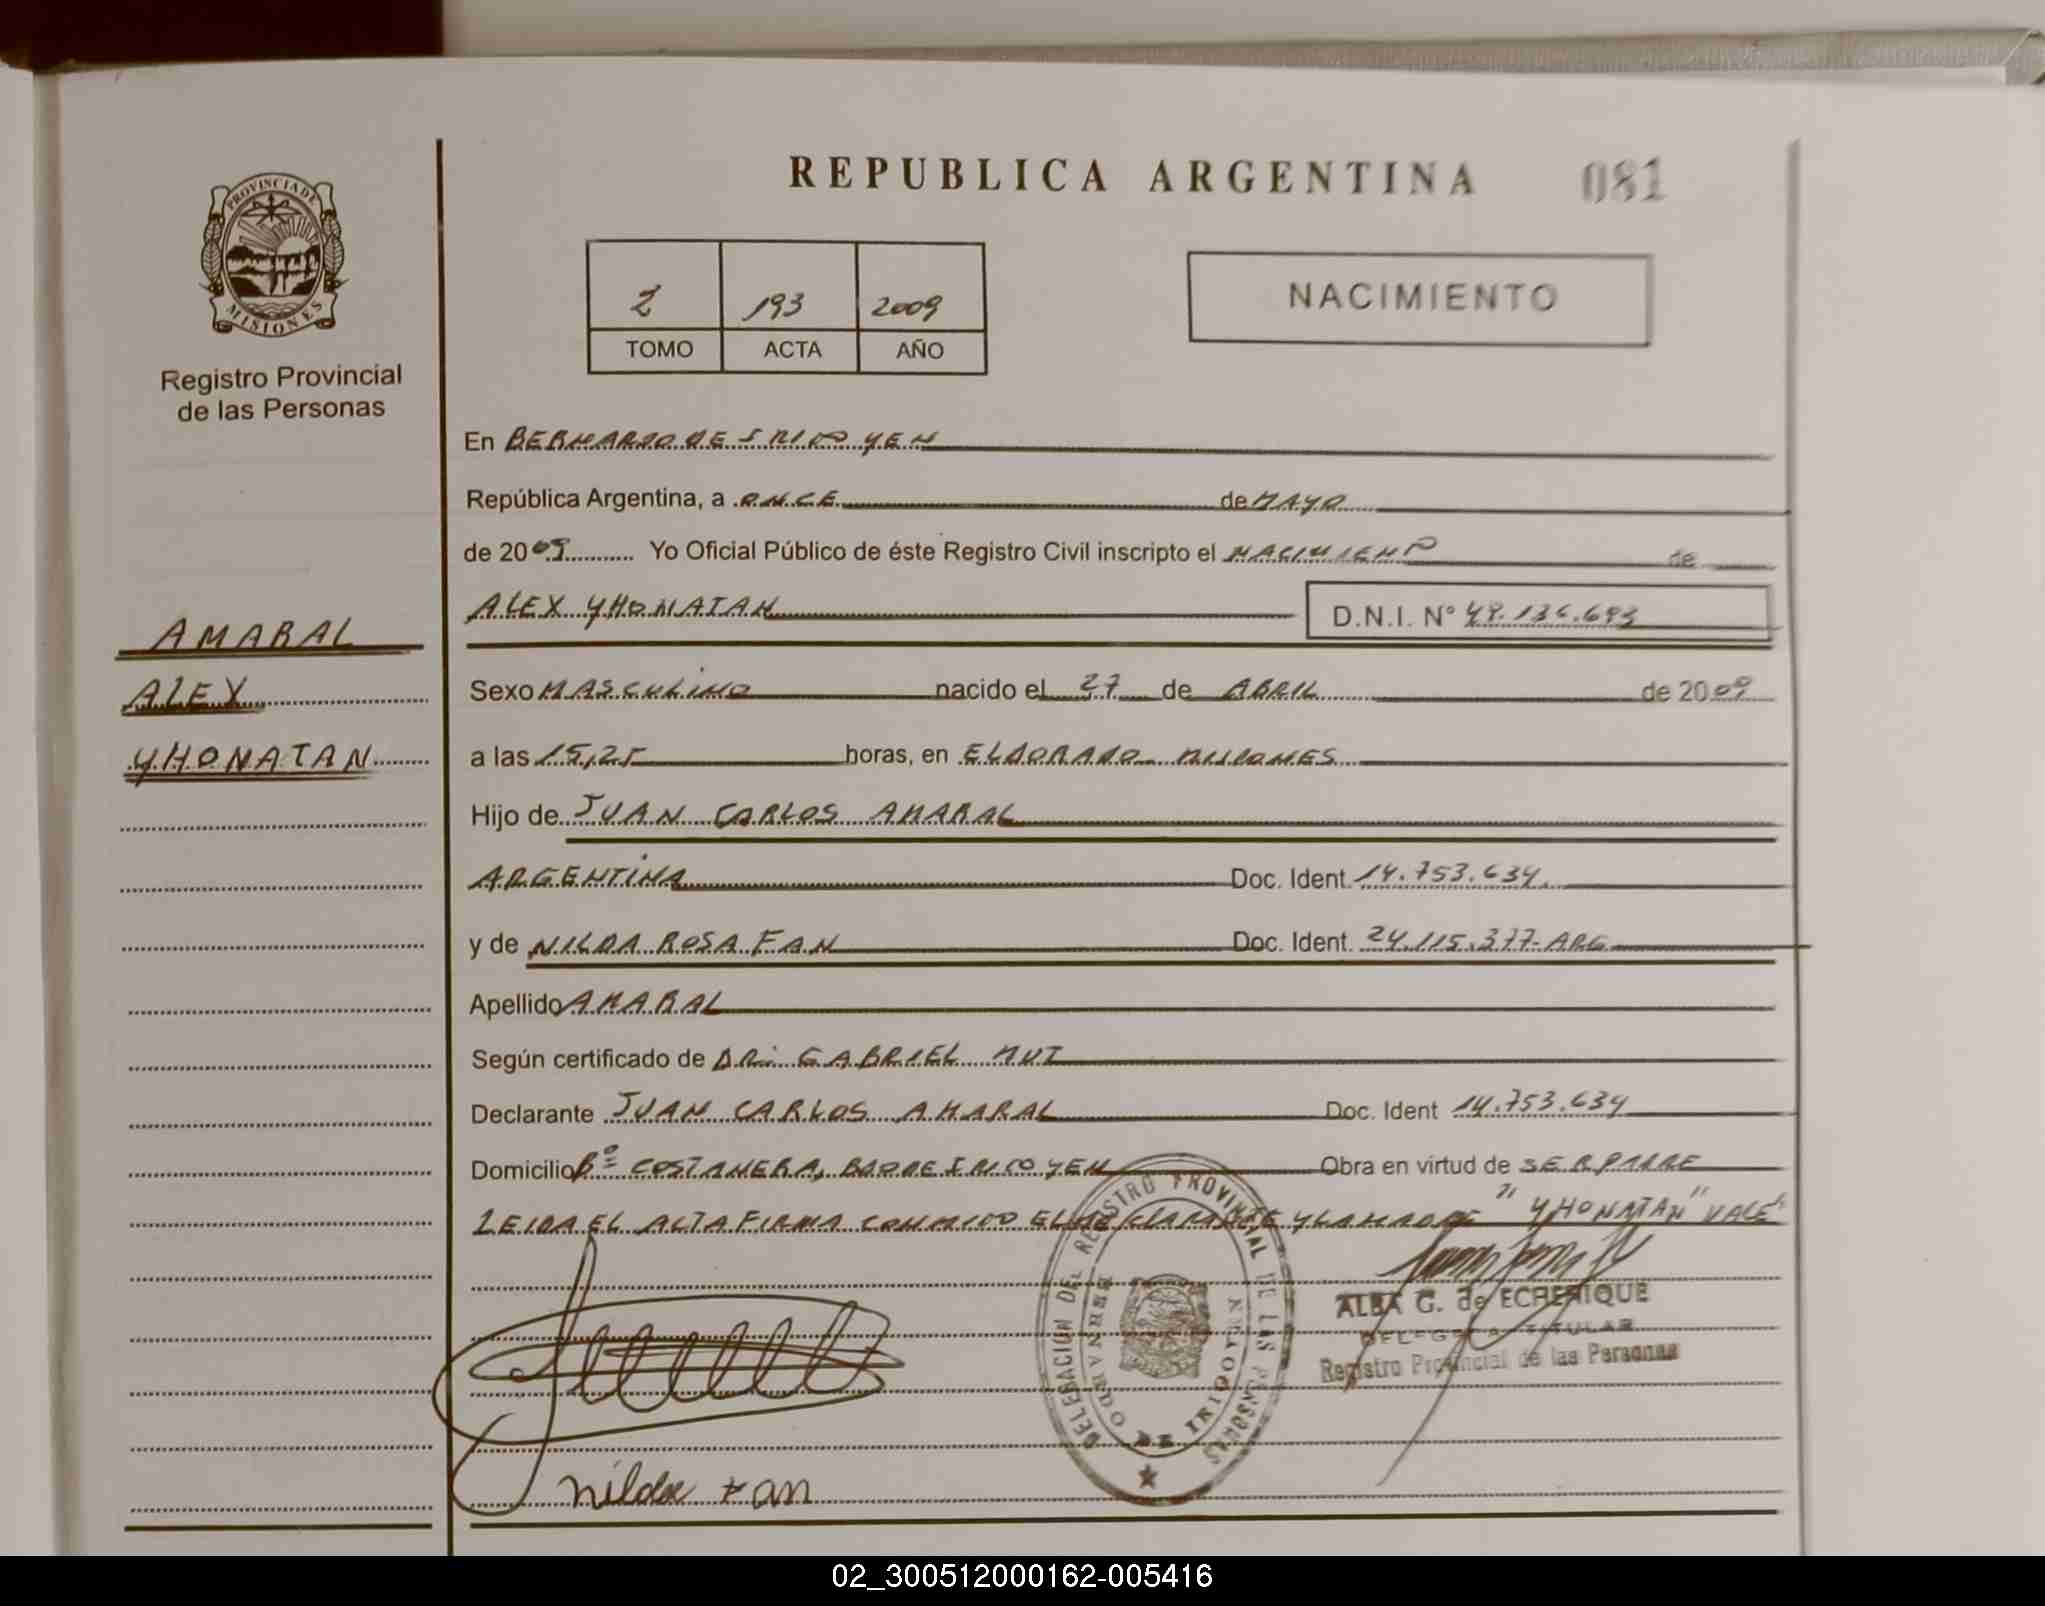 REPUBLICA ARGENTINA 081
PROVINCIA DE
MISIONES
Registro Provincial
de las Personas
2 193 2009
TOMO ACTA AÑO
NACIMIENTO
En BERNARDO DE IRIGOYEN
República Argentina, a ONCE de MAYO
de 2009 Yo Oficial Público de éste Registro Civil inscripto el NACIMIENTO de
ALEX YHONATAN D.N.I. N° 49.136.693
AMARAL
ALEX
YHONATAN
Sexo MASCULINO nacido el 27 de ABRIL de 2009
a las 15,25 horas, en ELDORADO MISIONES
Hijo de JUAN CARLOS AMARAL
ARGENTINA Doc. Ident. 14.753.634
y de NILDA ROSA FAN Doc. Ident. 24.115.377-ARG
Apellido AMARAL
Según certificado de DR: GABRIEL MUT
Declarante JUAN CARLOS AMARAL Doc. Ident 14.753.634
Domicilio Bº COSTANERA, BDO DE IRIGOYEN Obra en virtud de SER PADRE
LEIDA EL ACTA FIRMA CONMIGO EL DECLARANTE Y LA MADRE "YHONATAN" VALE
DELEGACION DEL REGISTRO PROVINCIAL DE LAS PERSONAS
BERNARDO DE IRIGOYEN
ALBA G. de ECHENIQUE
DELEGADA TITULAR
Registro Provincial de las Personas
Nilda Fan
02_300512000162-005416